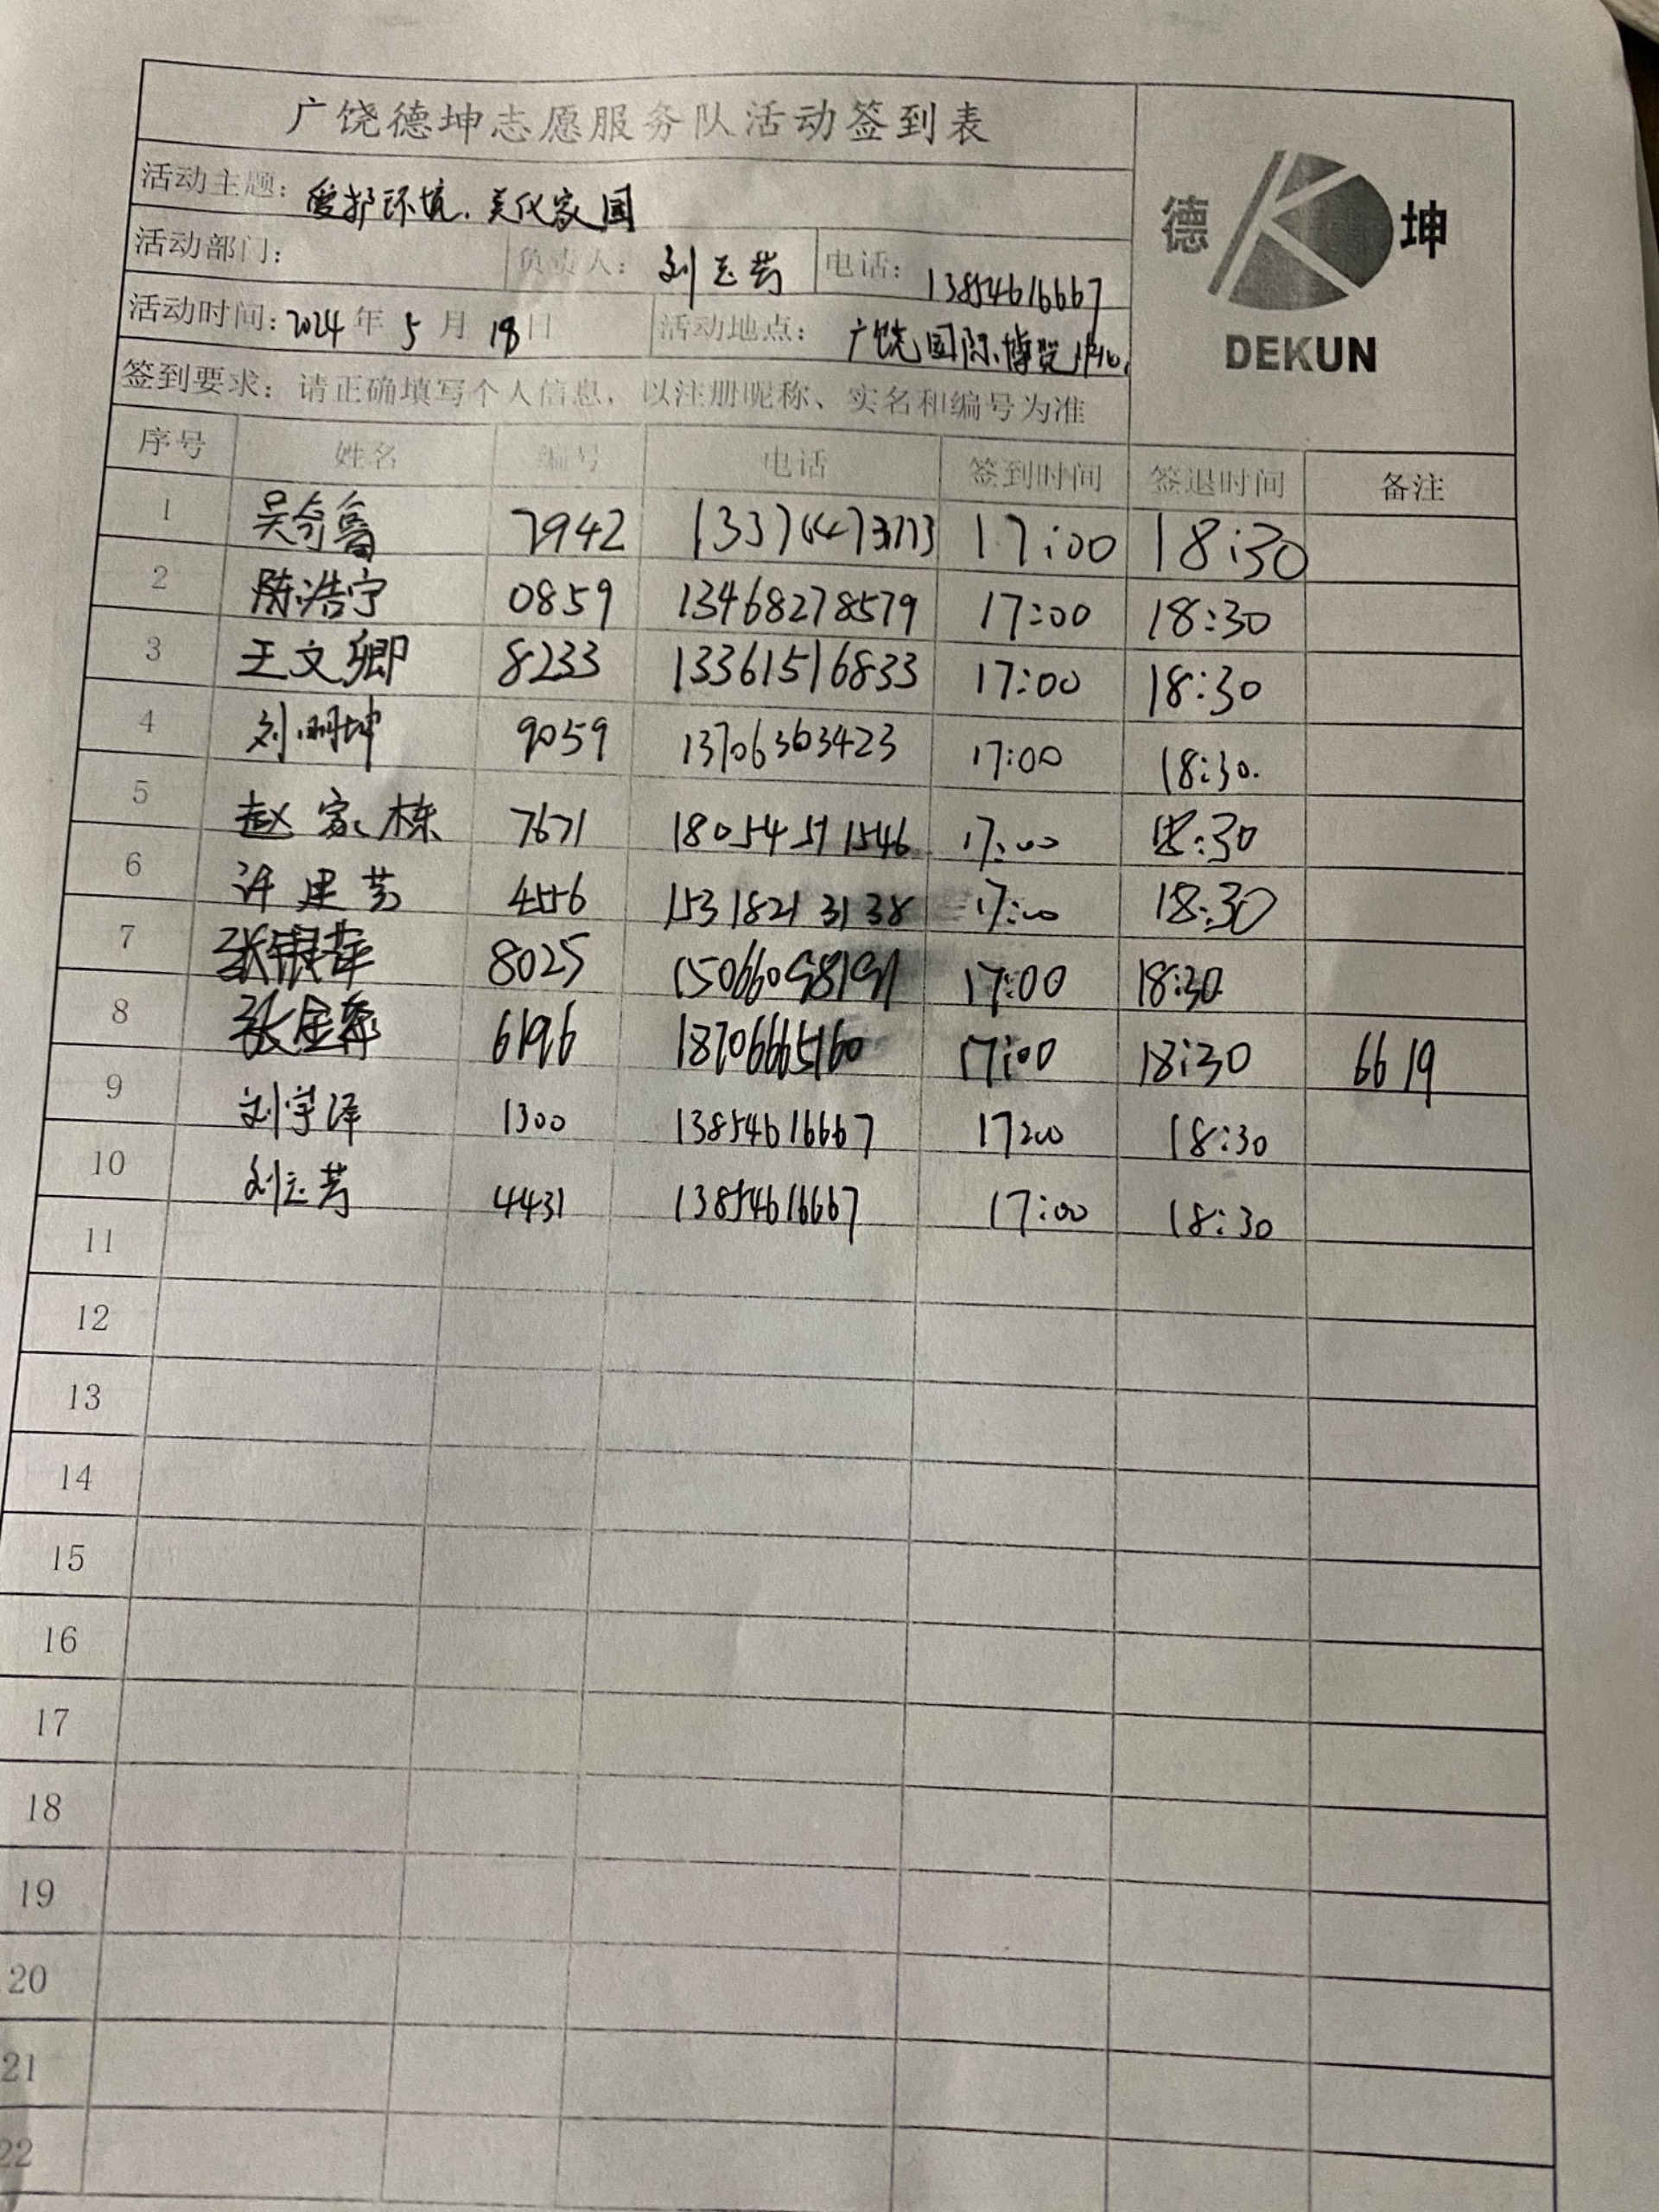 广饶德坤志愿服务队活动签到表
活动主题：爱护环境.美化家园
德 坤
活动部门： 负责人：刘玉芳 电话：13854616667
活动时间：2024年5月18日 活动地点：广饶国际博览中心.
DEKUN
签到要求：请正确填写个人信息，以注册昵称、实名和编号为准
序号 姓名 编号 电话 签到时间 签退时间 备注
1 吴奇鲁 7942 17:00 18:30
2 陈浩宁 0859 13468278579 17:00 18:30
3 王文卿 8233 13361516833 17:00 18:30
4 刘明坤 9059 13706363423 17:00 18:30.
5 赵家栋 7671 18054571546 17:00 18:30
6 许建芸 4556 15318213138 17:00 18:30
7 张银萍 8025 15066098191 17:00 18:30
8 6196 18706665160 17:00 18:30 6619
9 刘宇泽 1300 13854616667 17:00 18:30
10 刘玉芳 4431 13854616667 17:00 18:30
11
12
13
14
15
16
17
18
19
20
21
22